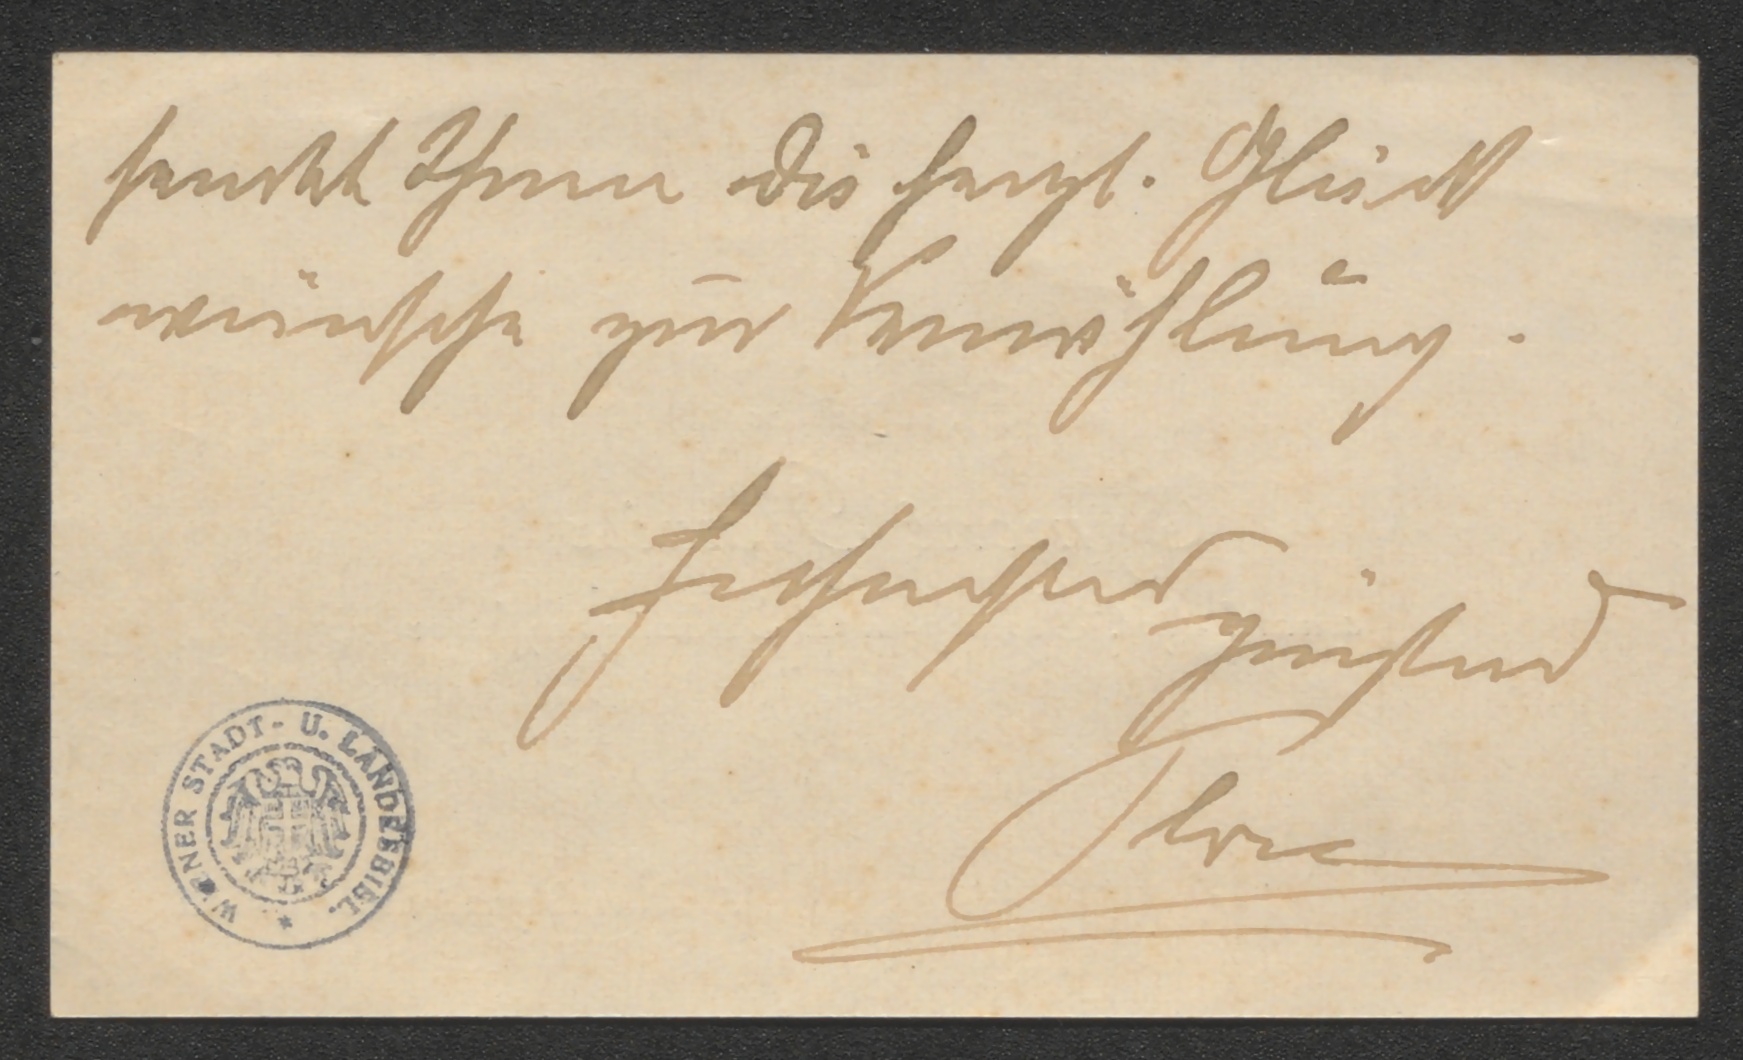 sendet Ihnen die herzl. Glück
wünsche zur Vermählung.
Hochachtend
grüßend
WIENER STADT- U. LANDESBIBL.